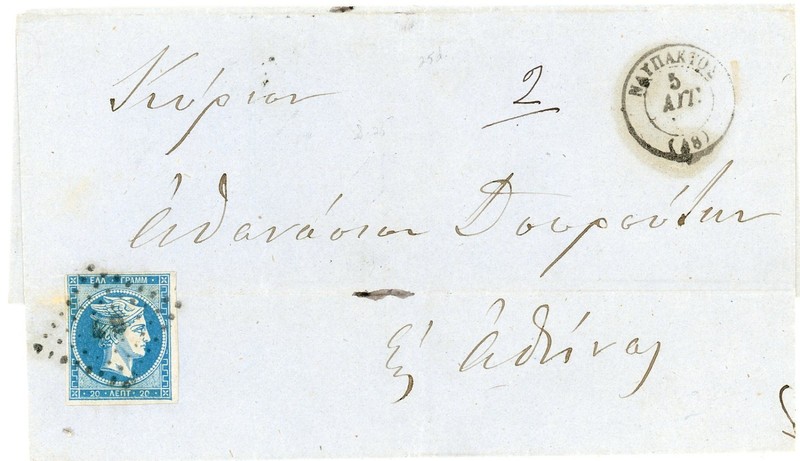 2
ΝΑΥΠΑΚΤΟΣ
5
ΑΥΓ.
(48)
Κύριον
Ἀθανάσιον Δουρούτην
Εἰς Ἀθήνας
ΕΛΛ ΓΡΑΜΜ
20 ΛΕΠΤ 20